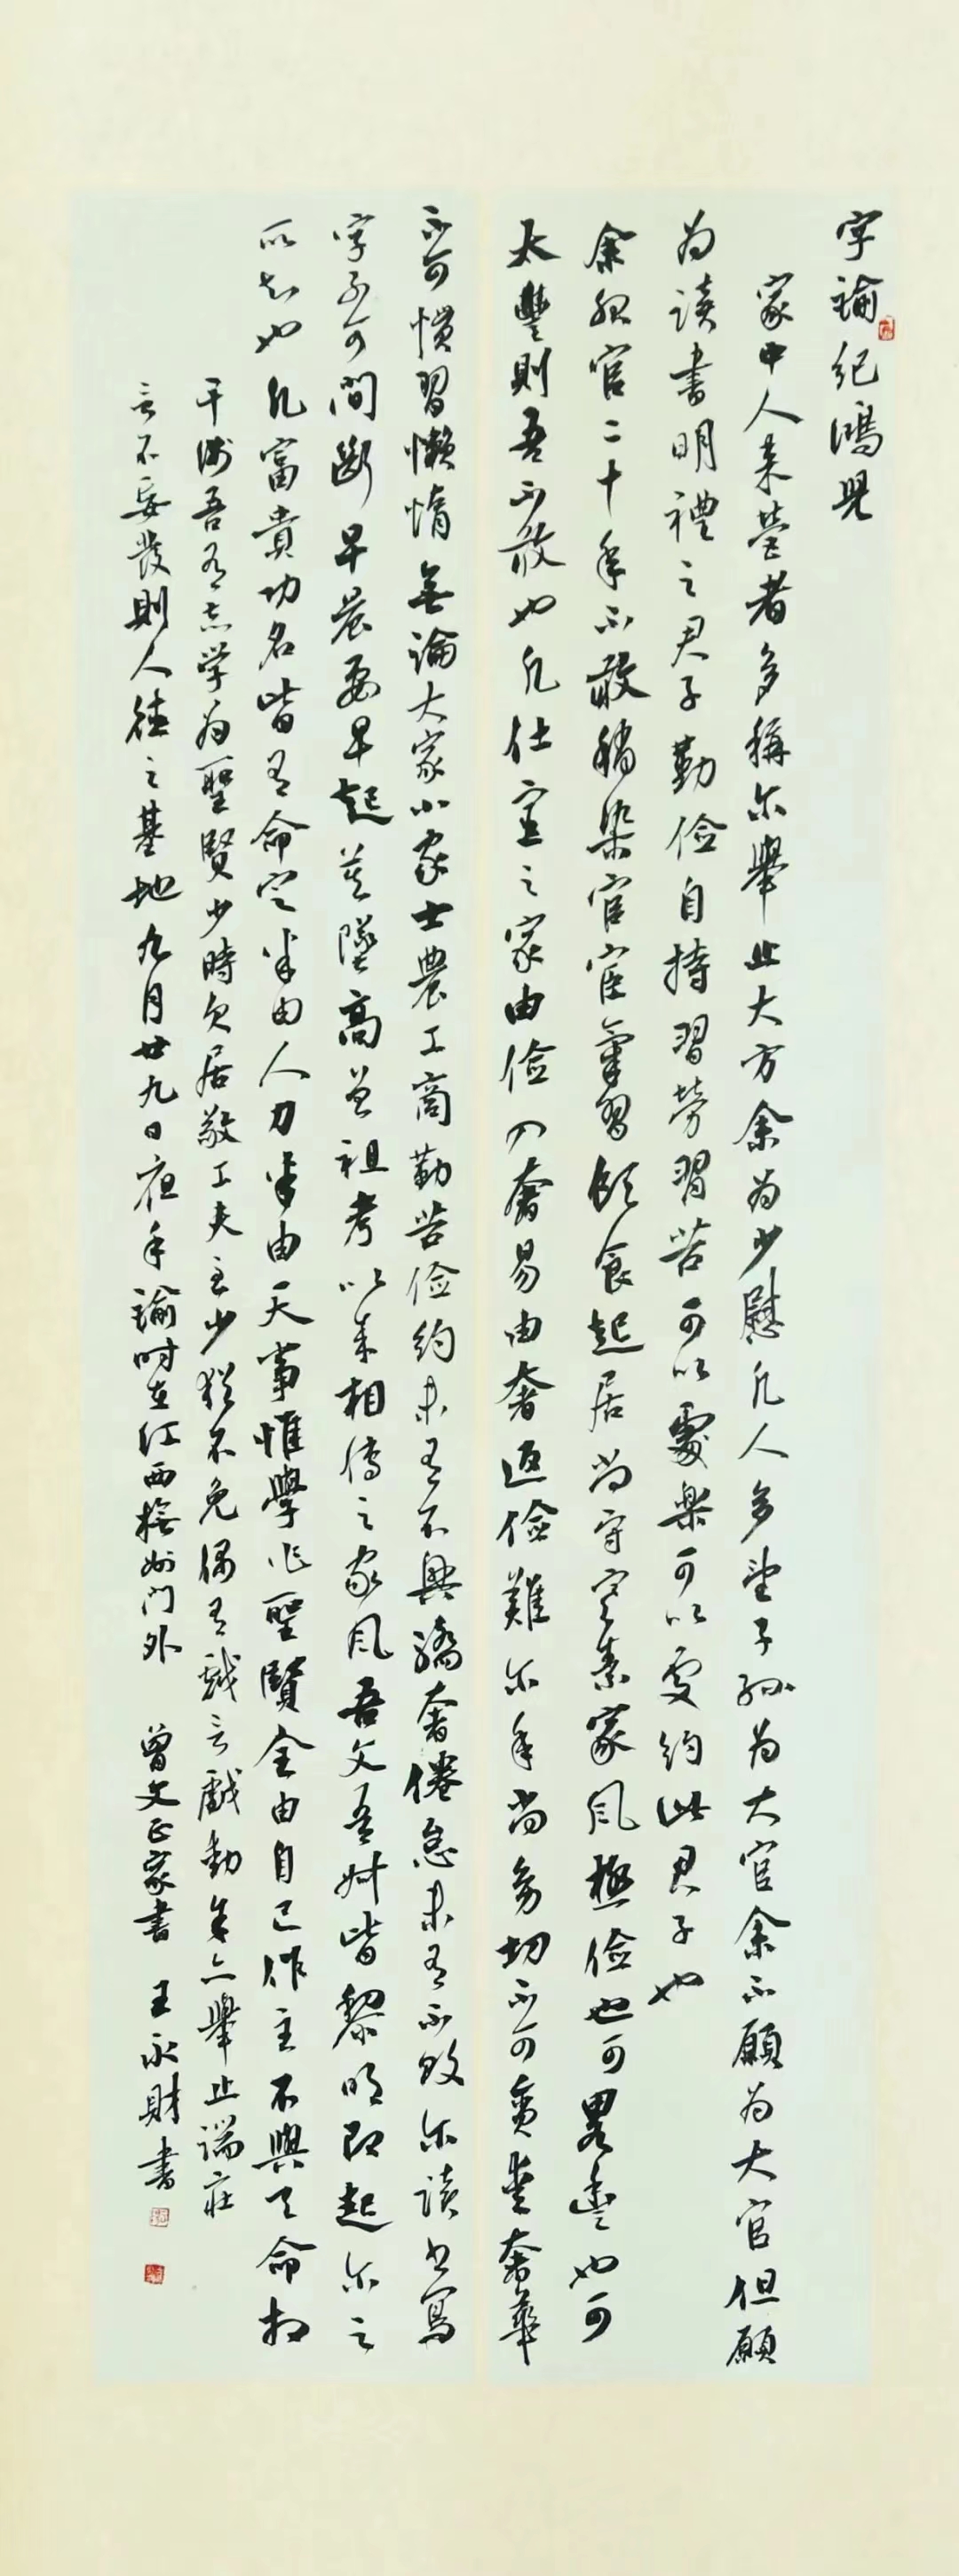 字諭紀鴻兒
家中人来营者多稱尔舉止大方余为少慰凡人多望子孫为大官余不願为大官但願
为读書明禮之君子勤俭自持習劳習苦可以處楽可以处约此君子也
余服官二十年不敢稍染官宦氣習飲食起居尚守寒素家风極俭也可畧豊也可
太豐則吾不敢也凡仕宦之家由俭入奢易由奢返儉難尔年尚幼切不可貪爱奢華
不可惯習懒惰無論大家小家士農工商勤苦俭约未有不興驕奢倦怠未有不败尔读书寫
字不可間断早晨要早起莫墜高曾祖考以来相傳之家风吾父吾叔皆黎明即起尔之
所知也凡富貴功名皆有命定半由人力半由天事惟學作聖賢全由自己作主不與天命相
干涉吾有志学为聖賢少時欠居敬工夫至少猶不免偶有戏言戲動尔亦舉止端莊
言不妄發則入德之基地九月廿九日夜手諭时在江西撫州门外　曾文正家書　王永財書